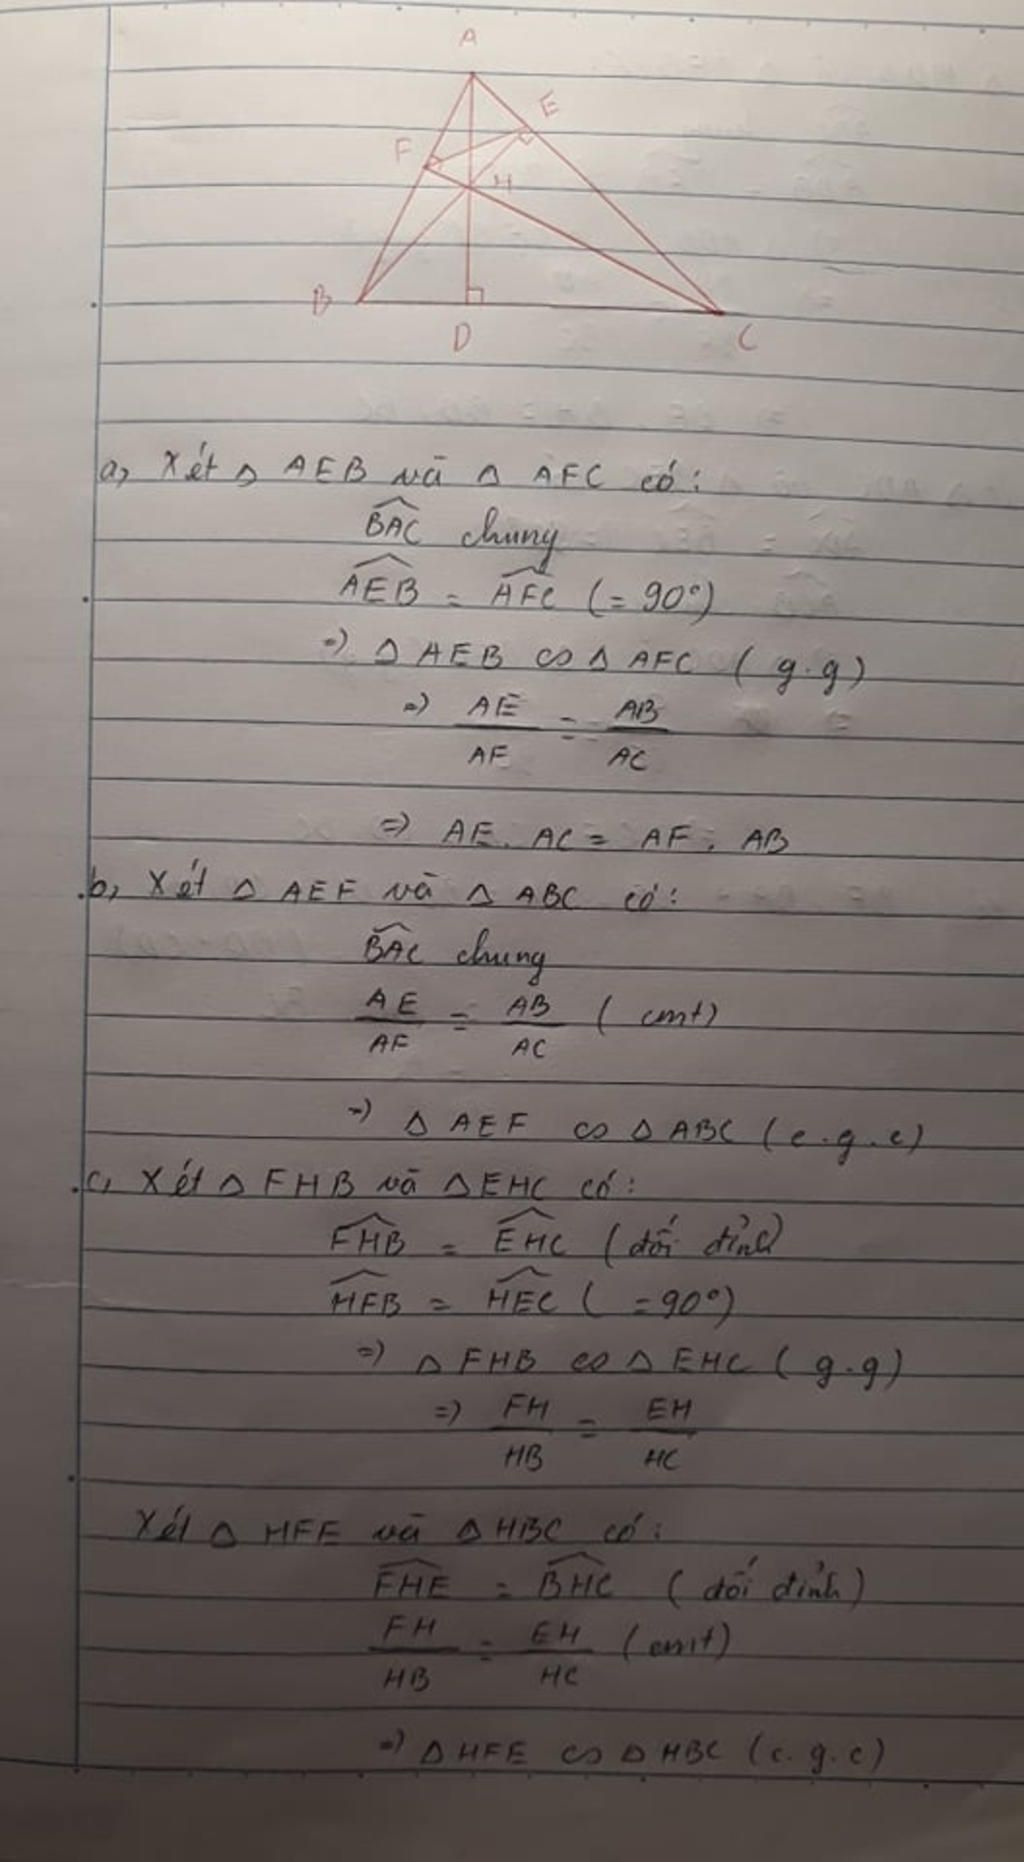 A
E
F
H
B
D
C
a, Xét Δ AEB và Δ AFC có:
$\widehat{BAC}$ chung
$\widehat{AEB}$ = $\widehat{AFC}$ (= 90°)
=) Δ AEB ∽ Δ AFC ( g.g)
=) $\frac{AE}{AF}$ = $\frac{AB}{AC}$
=) AE. AC = AF. AB
b, Xét Δ AEF và Δ ABC có:
$\widehat{BAC}$ chung
$\frac{AE}{AF}$ = $\frac{AB}{AC}$ ( cmt)
=) Δ AEF ∽ Δ ABC (c.g.c)
c, Xét Δ FHB và Δ EHC có:
$\widehat{FHB}$ = $\widehat{EHC}$ (đối đỉnh)
$\widehat{HFB}$ = $\widehat{HEC}$ ( =90°)
=) Δ FHB ∽ Δ EHC ( g.g)
=) $\frac{FH}{HB}$ = $\frac{EH}{HC}$
Xét Δ HFE và Δ HBC có:
$\widehat{FHE}$ = $\widehat{BHC}$ ( đối đỉnh)
$\frac{FH}{HB}$ = $\frac{EH}{HC}$ (cmt)
=) Δ HFE ∽ Δ HBC (c.g.c)